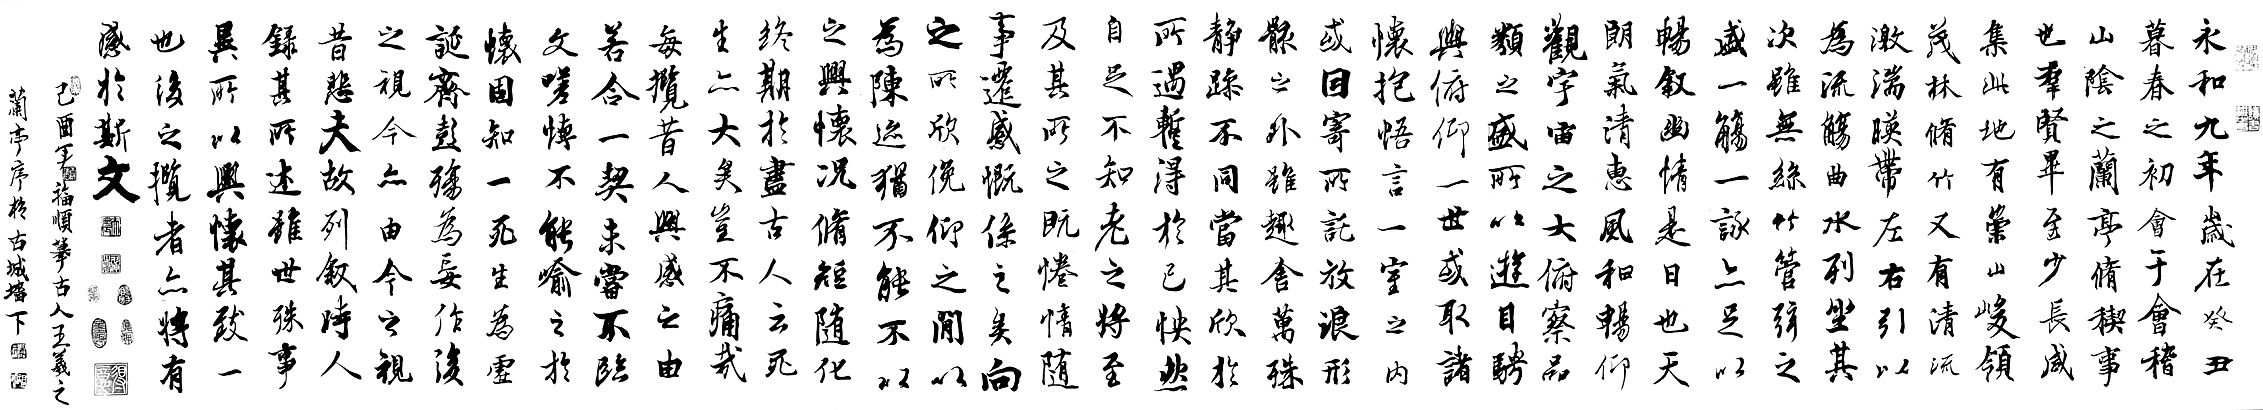 永和九年歲在癸丑
暮春之初會于會稽
山陰之蘭亭脩稧事
也羣賢畢至少長咸
集此地有崇山峻領
茂林脩竹又有清流
激湍暎帶左右引以
為流觴曲水列坐其
次雖無絲竹管弦之
盛一觴一詠亦足以
暢叙幽情是日也天
朗氣清惠風和暢仰
觀宇宙之大俯察品
類之盛所以遊目騁
與俯仰一世或取諸
懷抱悟言一室之內
或因寄所託放浪形
骸之外雖趣舍萬殊
静躁不同當其欣於
所遇蹔得於己怏然
自足不知老之將至
及其所之既惓情随
事遷感慨係之矣向
之所欣俛仰之間以
為陳迹猶不能不以
之興懷況脩短随化
終期於盡古人云死
生亦大矣豈不痛哉
每攬昔人興感之由
若合一契未嘗不臨
文嗟悼不能喻之於
懷固知一死生為虛
誕齊彭殤為妄作後
之視今亦由今之視
昔悲夫故列叙時人
錄其所述雖世殊事
異所以興懷其致一
也後之攬者亦將有
感於斯文
己酉年福順摹古人王羲之
蘭亭序於古城墻下